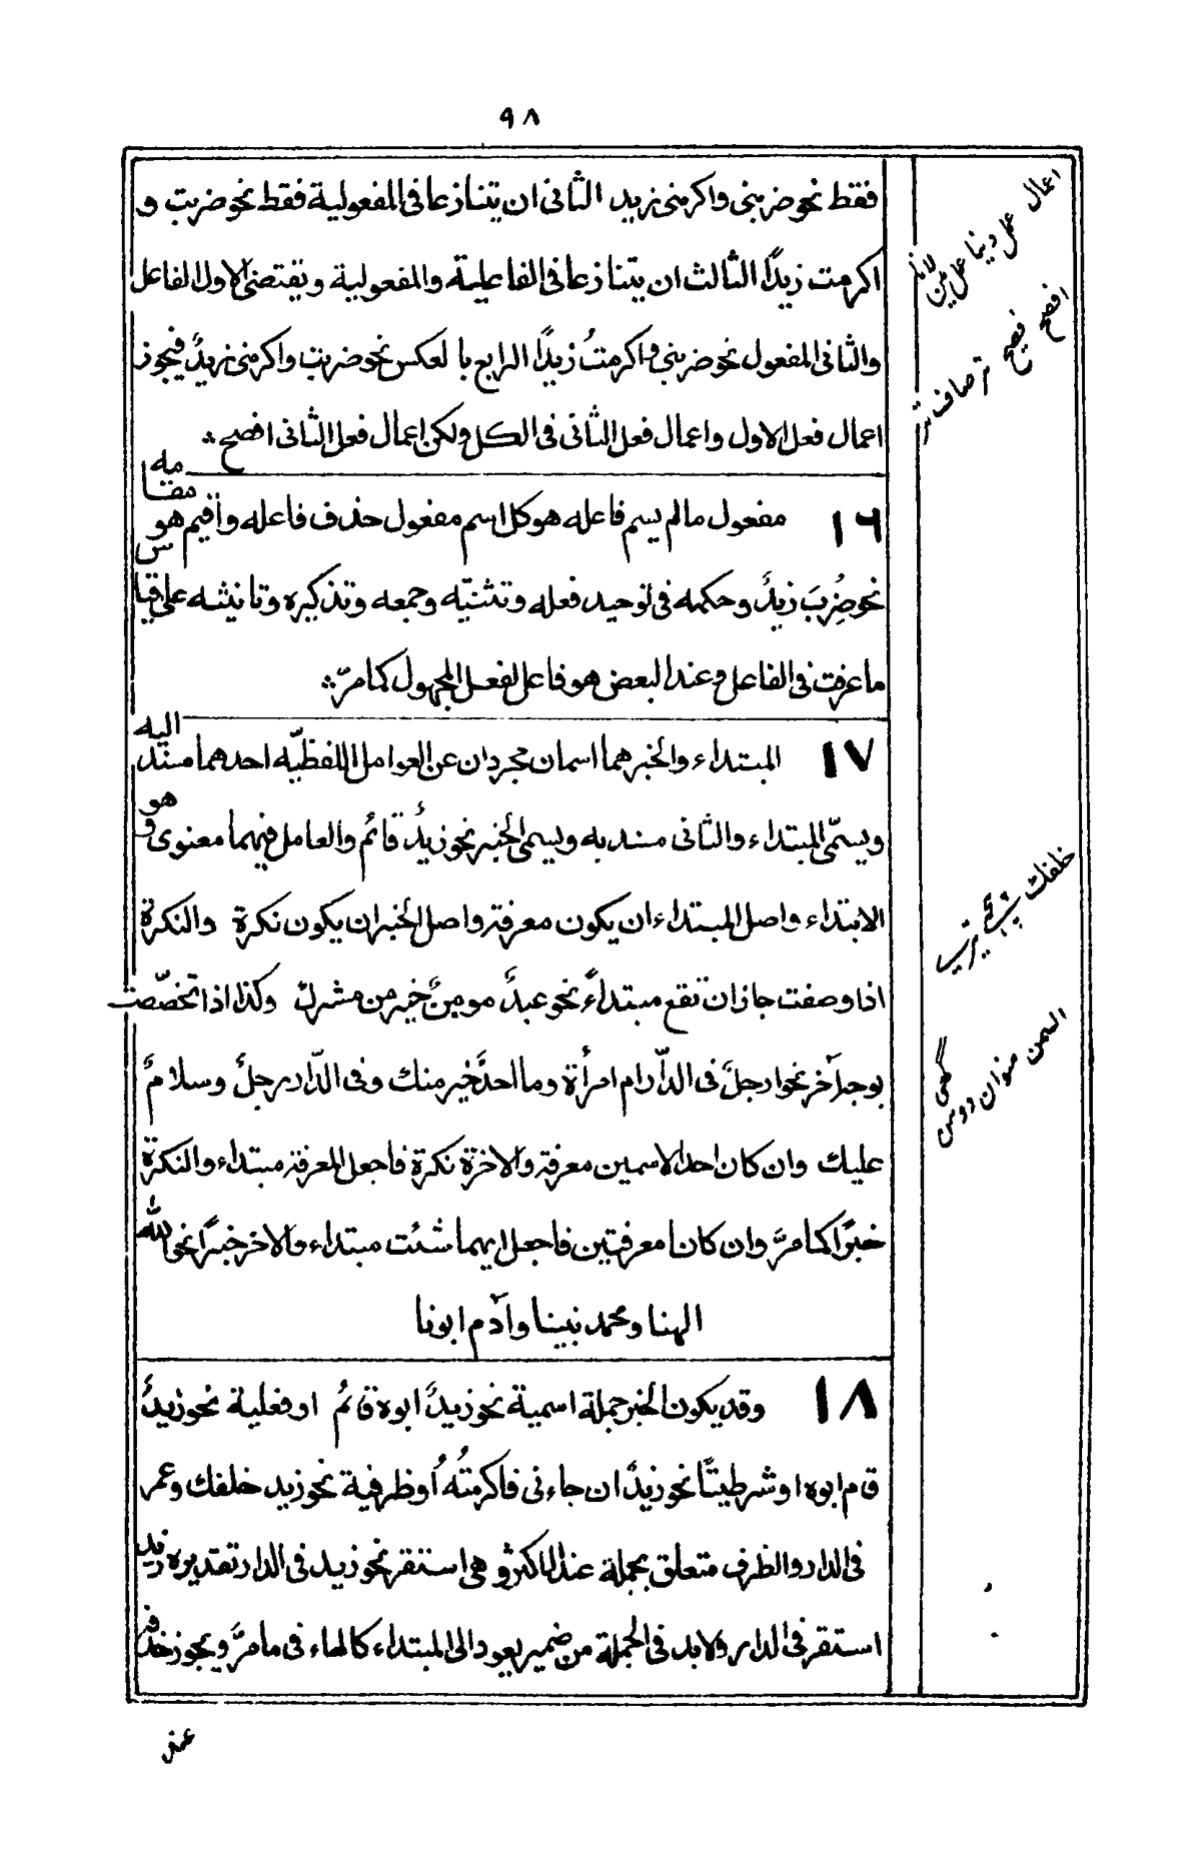 ٩٨
فقط نحو ضربنى واكرمنى زيد الثانى ان يتنازعا فى المفعولية فقط نحو ضربت و
اكرمت زيدًا الثالث ان يتنازعا فى الفاعلية والمفعولية ويقتضى الاول الفاعل
والثانى المفعول نحو ضربنى واكرمتُ زيدًا الرابع بالعكس نحو ضربت واكرمنى زيدٌ فيجوز
اعمال فعل الاول واعمال فعل الثانى فى الكل ولكن اعمال فعل الثانى افصح
١٦ مفعول مالم يسم فاعله هو كل اسم مفعول حذف فاعله وأقيم هو مقامه
نحو ضُرِبَ زيدٌ وحكمه فى توحيد فعله وتثنيّه وجمعه وتذكيره وتانيثه على قياس
ما عرفت فى الفاعل وعند البعض هو فاعل لفعل المجهول كما مرّ
١٧ المبتداء والخبر هما اسمان مجردان عن العوامل اللفظيّه احدهما مسند اليه
ويسمّى المبتداء والثانى مسند به ويسمى الخبر نحو زيدٌ قائمٌ والعامل فيهما معنوى وهو
الابتداء واصل المبتداء ان يكون معرفة واصل الخبر ان يكون نكرة والنكرة
اذا وصفت جاز ان تقع مبتداءً نحو عبدٌ مومنٌ خير من مشرك وكذا اذا تخصّصت
بوجه آخر نحو ارجلٌ فى الدّار ام امرأة وما احدٌ خير منك وفى الدّار رجلٌ وسلامٌ
عليك وان كان احد الاسمين معرفة والاخرة نكرة فاجعل المعرفة مبتداء والنكرة
خبرًا كما مرَّ وان كانا معرفتين فاجعل ايهما شئت مبتداء والاخر خبرًا نحو الله
الهنا ومحمد نبينا وآدم ابونا
١٨ وقد يكون الخبر جملة اسمية نحو زيدٌ ابوه قائمٌ او فعلية نحو زيدٌ
قام ابوه او شرطيتًا نحو زيدٌ ان جاءنى فاكرمتُه أو ظرفية نحو زيد خلفك وعمر
فى الدار والظرف متعلق بجملة عند الاكثر وهى استقر نحو زيد فى الدار تقديره زيد
استقر فى الدار ولابد فى الجملة من ضمير يعود الى المبتداء كالهاء فى ما مرَّ ويجوز حذفه
اعمال عمل دنيا عمل من لانا
افصح فصيح تر صاف تر
خلفك پیچھے تیرے
السمن منوان دومن گھی
عند